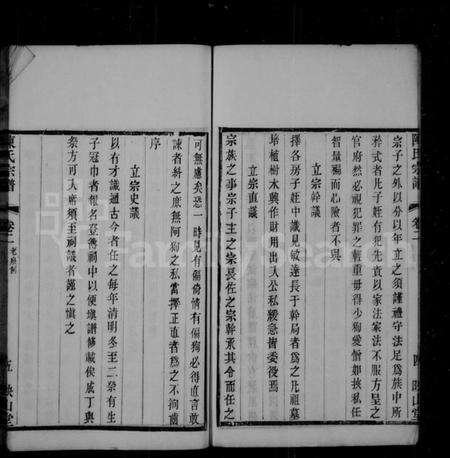 陳氏宗譜
卷二
四
映山堂
宗子之外以分以年立之須謹禮守法足爲族中所
矜式者凡子姪有犯先責以家法家法不服方呈之
官府然必視犯罪之輕重毋得少狥愛憎如挾私任
智量褊而心險者不與
立宗幹議
擇各房子姪中識見敏達長于幹局者爲之凡祖墓
培植樹木興作財用出入公私緩急皆委役焉
宗族之事宗子主之宗長佐之宗幹承其令而任之
立宗直議
可無慮矣恐一時見有偏倚情有偏狥必得直言敢
諫者糾之庶無阿狥之私當擇正直者爲之不拘齒
序
立宗史議
以有才識通古今者任之每年清明冬至二祭有生
子冠巾者報名登簿祠中以便填譜修葺俟歲丁與
祭方可入廟須至祠議者謹之慎之
陳氏宗譜
卷二
五
映山堂